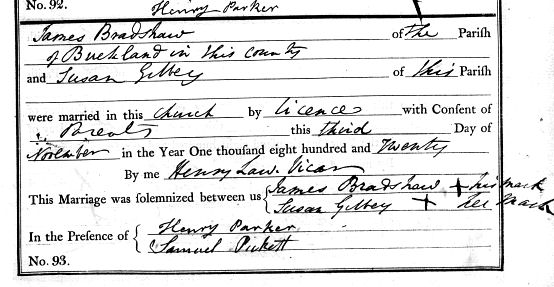 No. 92.
Henry Parker
James Bradshaw of the Parish
of Buckland in this county
and Susan Gilbey of this Parish
were married in this Church by Licence with Consent of
Parents this third Day of
November in the Year One thousand eight hundred and Twenty
By me Henry Law. Vicar
This Marriage was solemnized between us { James Bradshaw + his mark
Susan Gilbey + her mark
In the Presence of { Henry Parker
Samuel Pickett
No. 93.